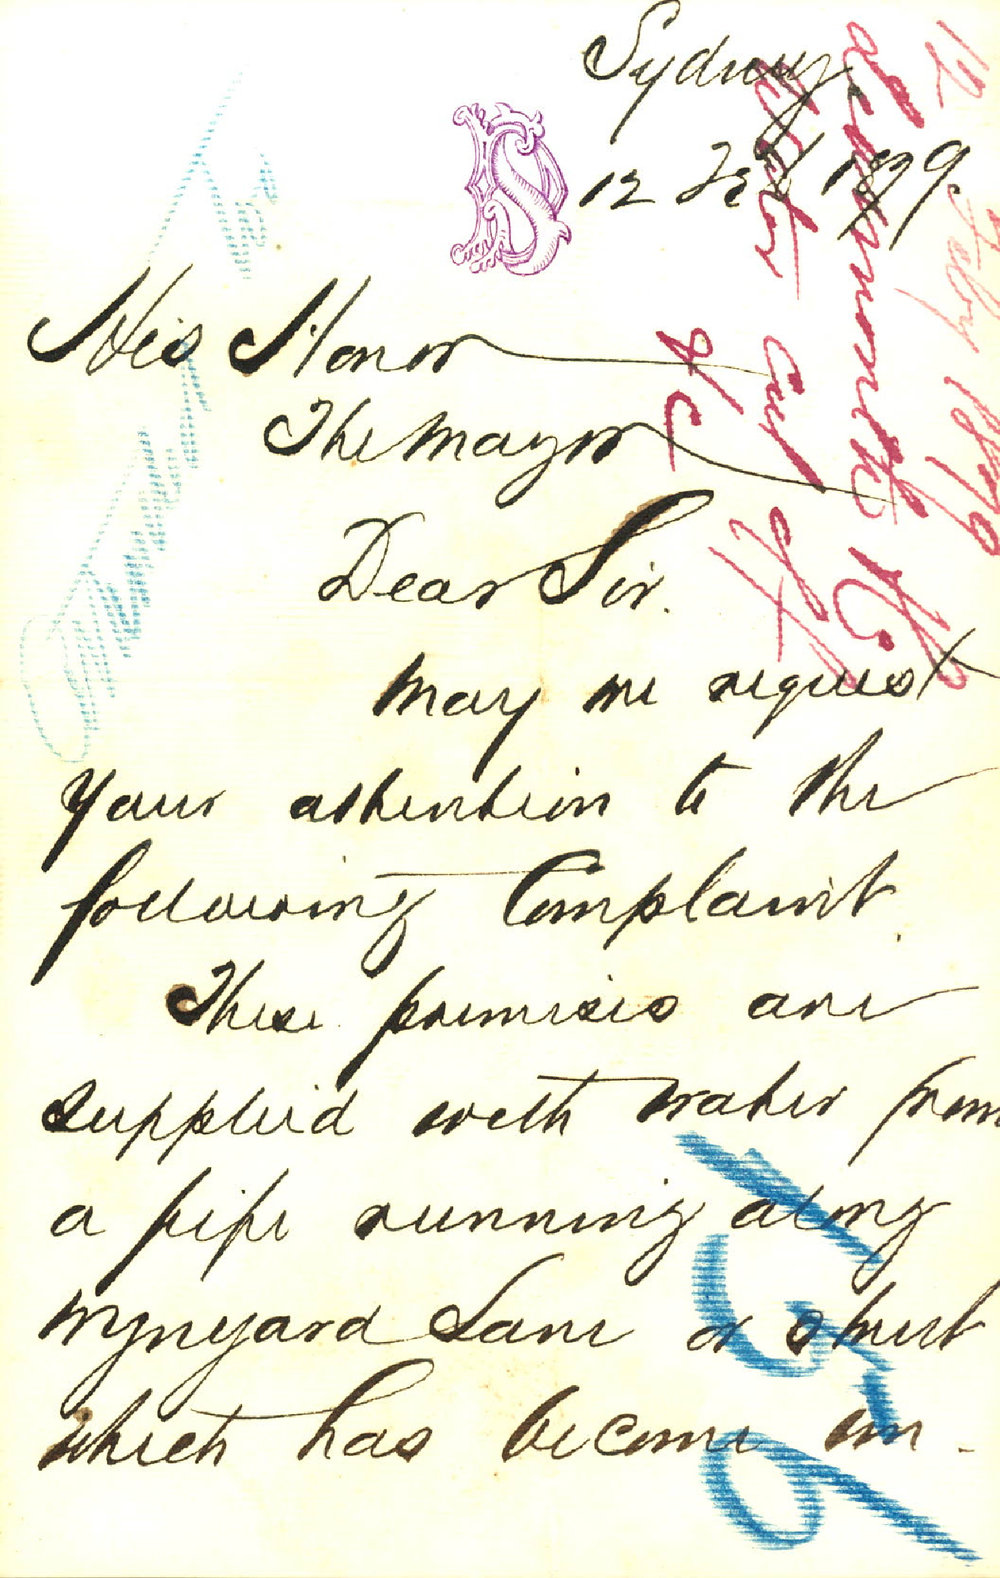 Sydney
12 Feb 1879
His Honor
The Mayor
Dear Sir.
May we request
Your attention to the
following Complaint.
These premises are
supplied with water from
a pipe running along
Wynyard Lane or street
which has become un-
12 Feby 1879
acknowledge
&c